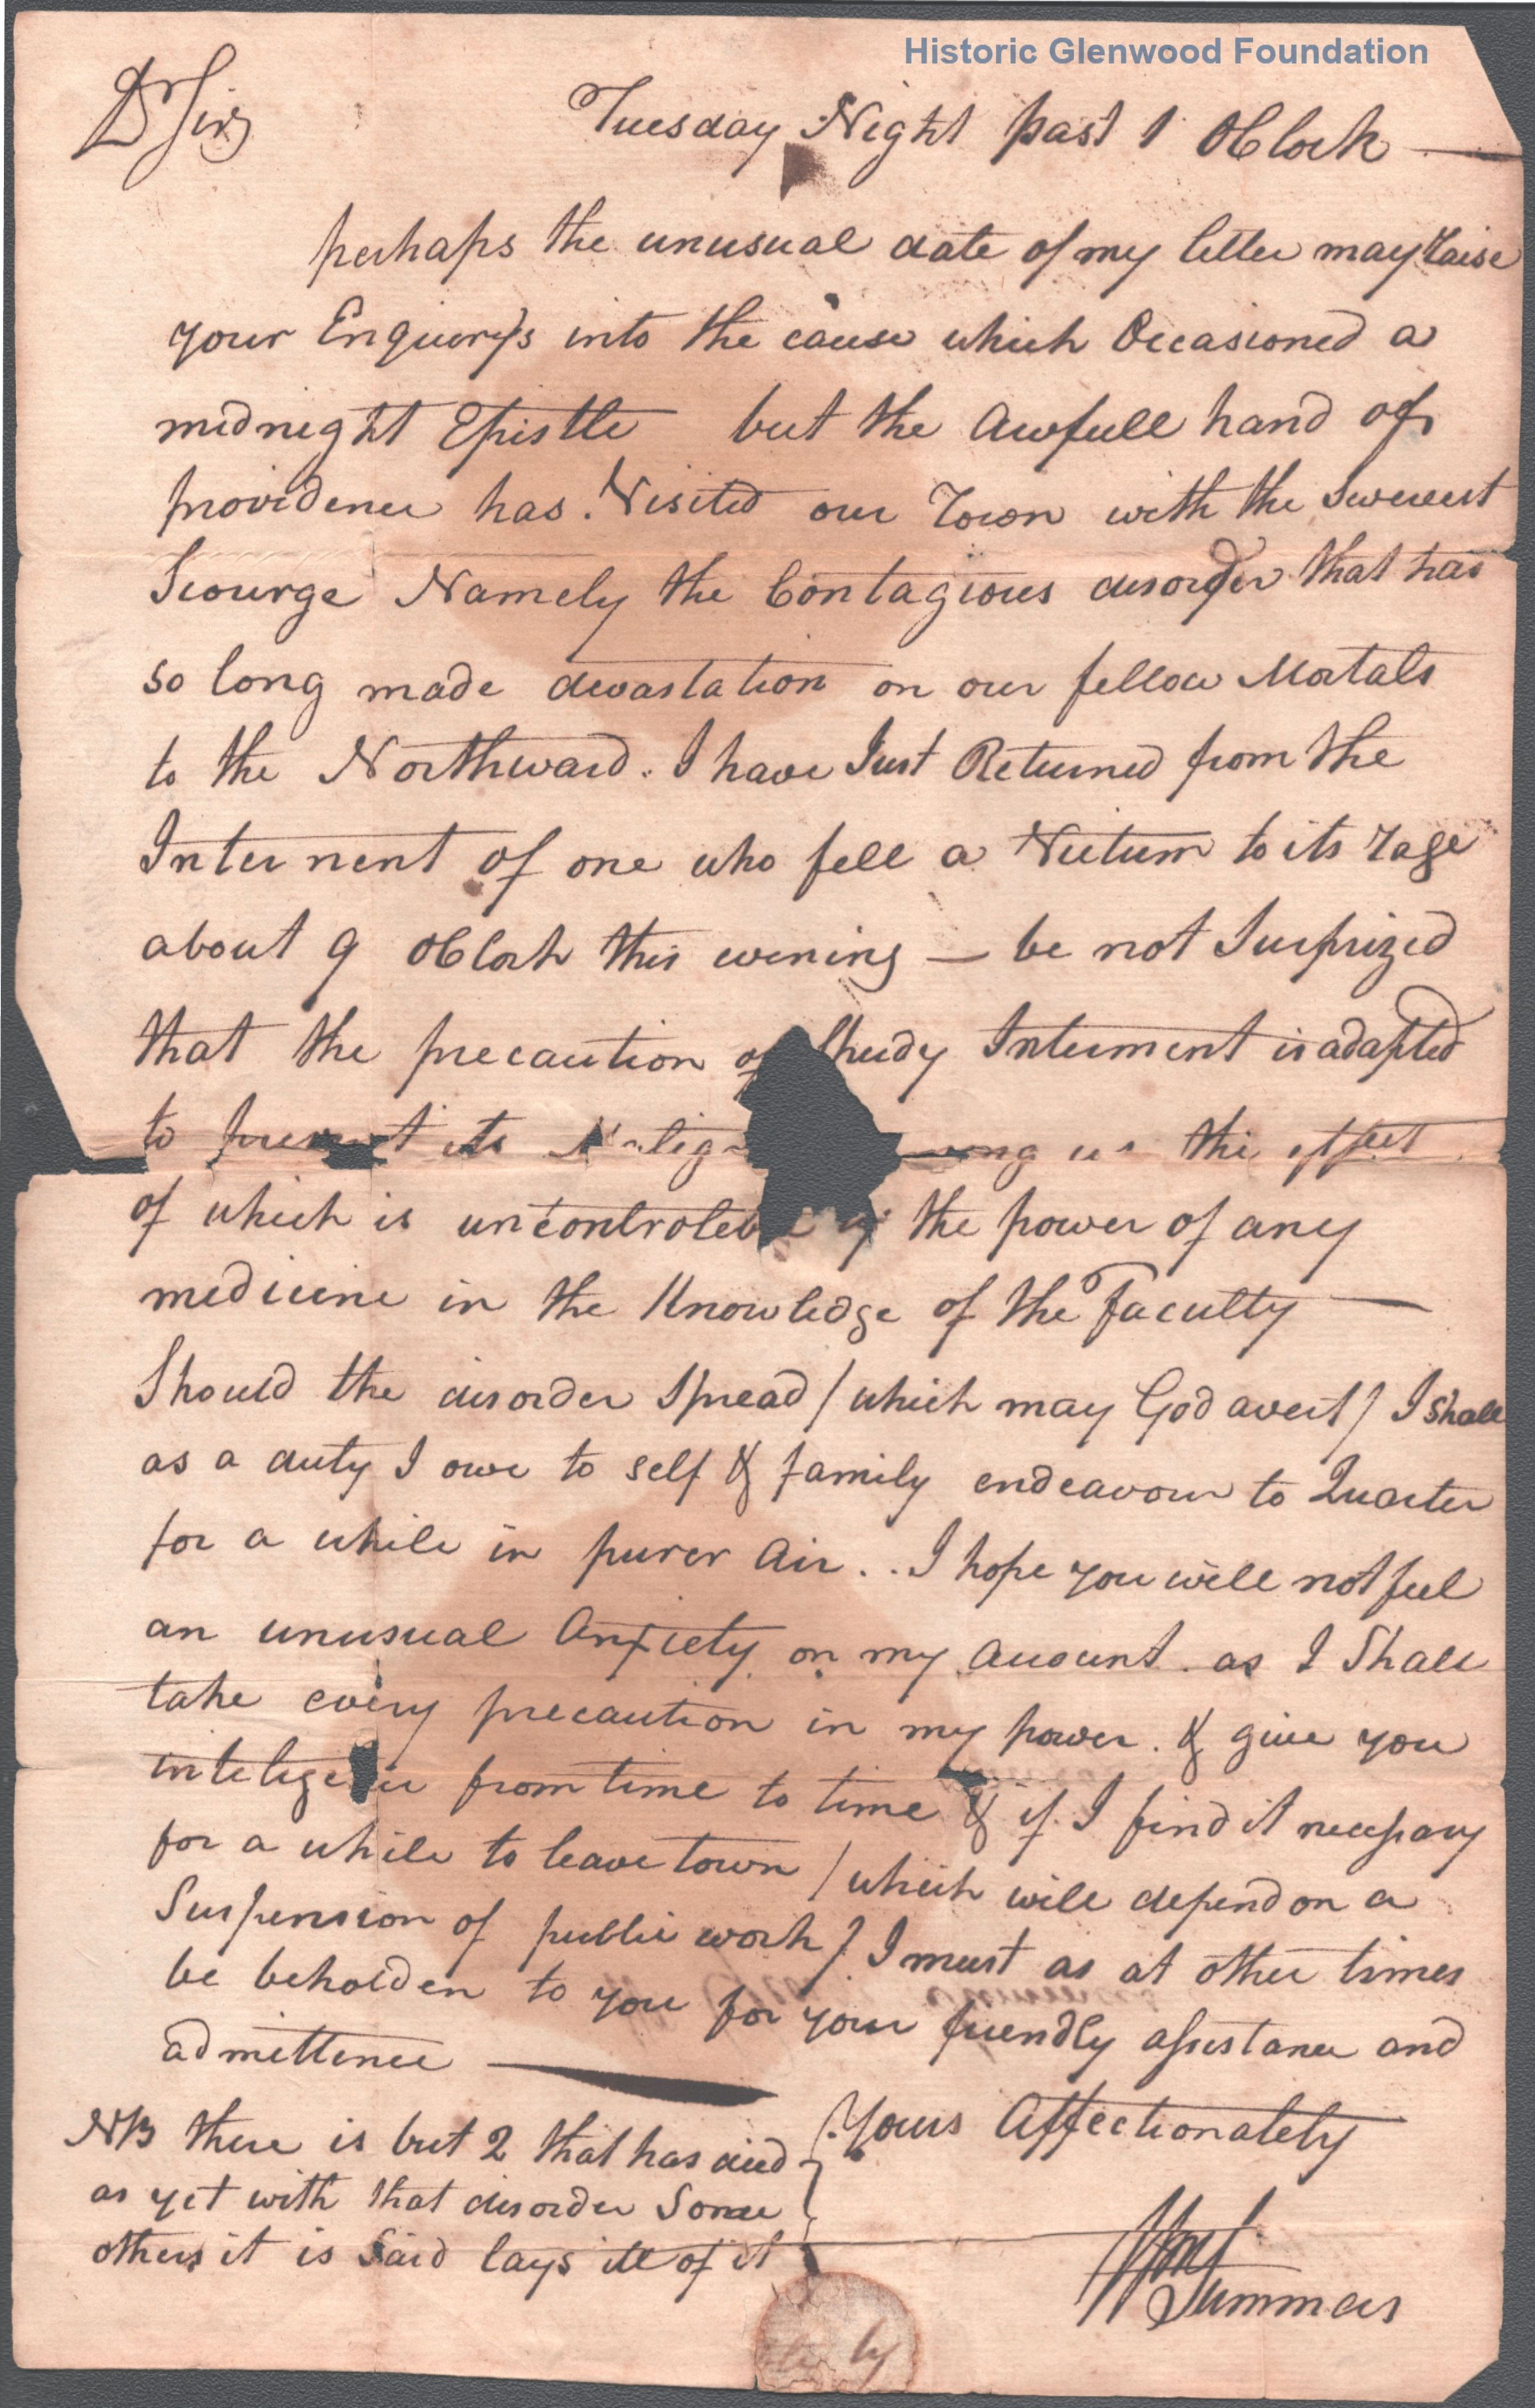 Historic Glenwood Foundation
Dr Sir,
Tuesday Night past 1 OClock —
perhaps the unusual date of my letter may raise
your Enquirys into the cause which Occasioned a
midnight Epistle but the Awfull hand of
providence has Visited our Town with the Sweverest
Scourge Namely the Contagious disorder that has
so long made devastation on our fellow Mortals
to the Northward. I have Just Returned from the
Interment of one who fell a Victum to its rage
about 9 OClock this evening — be not Surprized
that the precaution of Sheedy Interment is adapted
to prevent its Malig ong us the effect
of which is uncontroleb by the power of any
medicine in the Knowledge of the Faculty —
Should the disorder Spread / which may God avert / I shall
as a duty I owe to self & family endeavour to Quarter
for a while in purer Air .. I hope you will not feel
an unusual Anxiety on my Account as I Shall
take every precaution in my power. & give you
inteligence from time to time & if I find it necessary
for a while to leave town / which will depend on a
Suspension of public work / I must as at other times
be beholden to you for your friendly assistance and
admittence —
Yours Affectionately
NB there is but 2 that has died
as yet with that disorder Some
others it is Said lays ill of it
Wm Summers
by